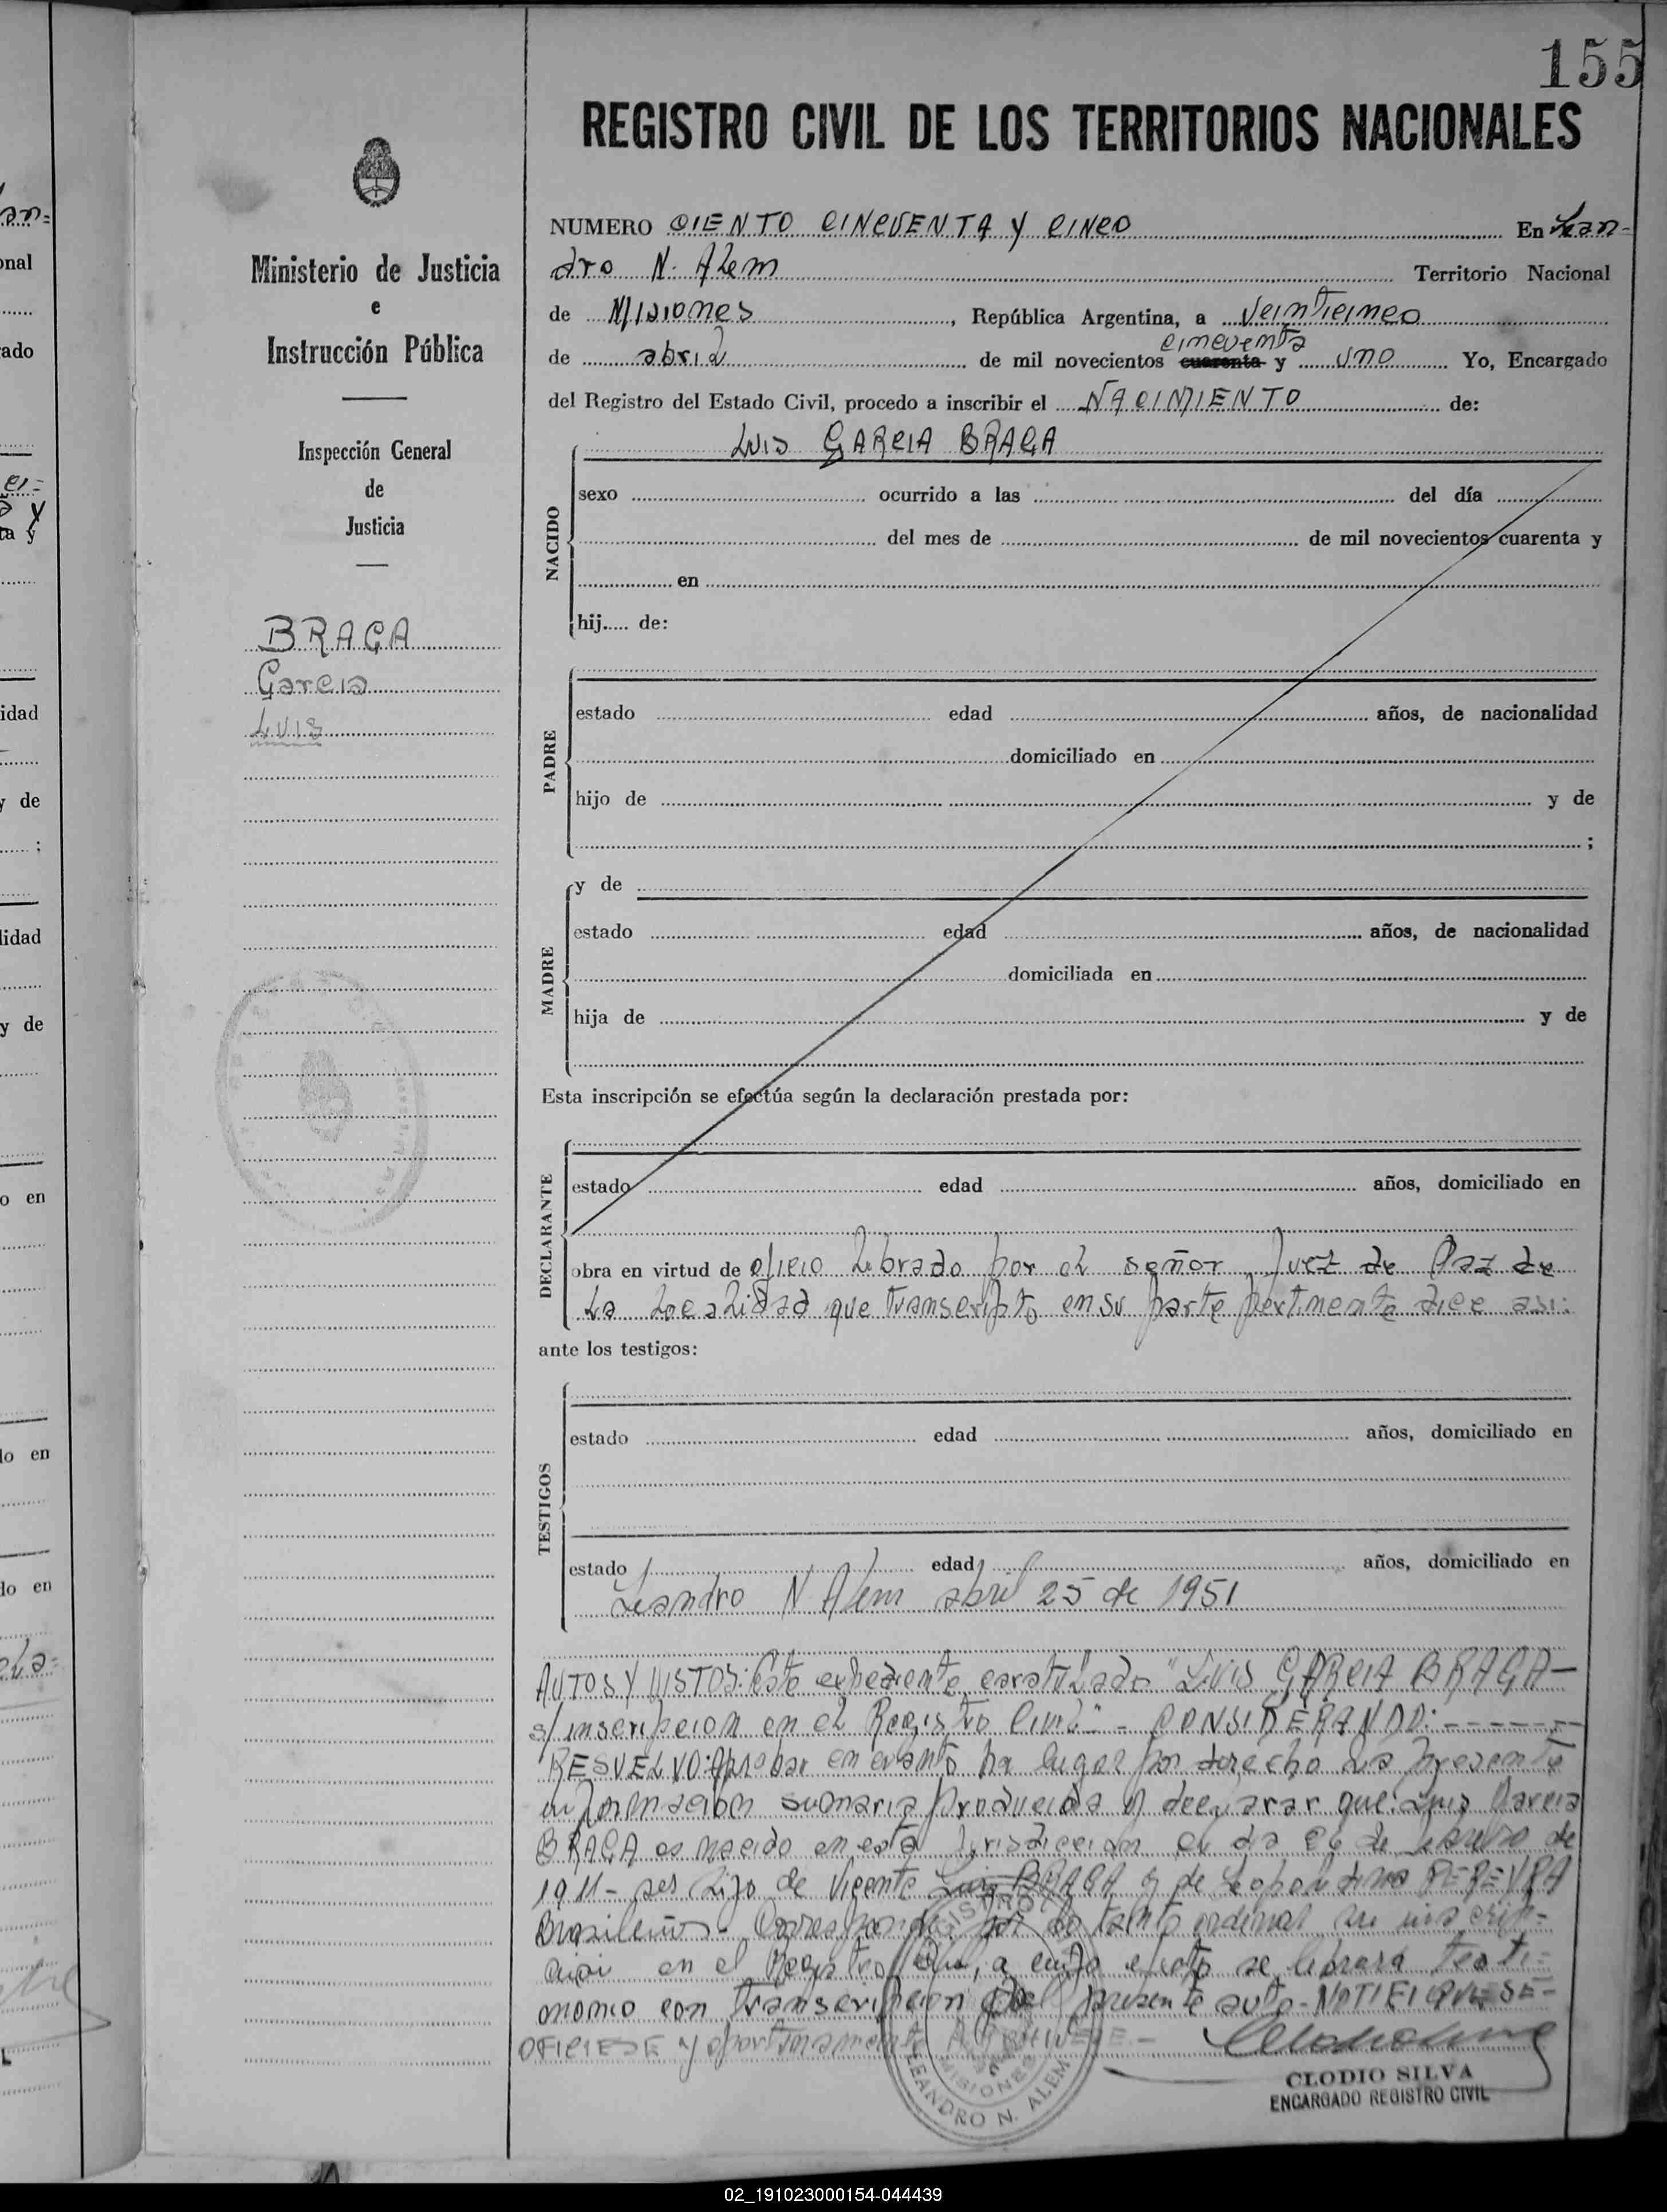 155
REGISTRO CIVIL DE LOS TERRITORIOS NACIONALES
Ministerio de Justicia
e
Instrucción Pública
Inspección General
de
Justicia
BRAGA
Garcia
LUIS
NUMERO CIENTO CINCUENTA Y CINCO En Lean=
dro N. Alem Territorio Nacional
de Misiones, República Argentina, a veinticinco
cincuenta
de abril de mil novecientos cuarenta y uno Yo, Encargado
del Registro del Estado Civil, procedo a inscribir el NACIMIENTO de:
LUIS GARCIA BRAGA
NACIDO
sexo ocurrido a las del día
del mes de de mil novecientos cuarenta y
en
hij..... de:
PADRE
estado edad años, de nacionalidad
domiciliado en
hijo de y de
;
MADRE
y de
estado edad años, de nacionalidad
domiciliada en
hija de y de
Esta inscripción se efectúa según la declaración prestada por:
DECLARANTE
estado edad años, domiciliado en
obra en virtud de oficio librado por el señor Juez de Paz de
la localidad que transcripto en su parte pertinente dice asi:
ante los testigos:
TESTIGOS
estado edad años, domiciliado en
estado edad años, domiciliado en
Leandro N Alem abril 25 de 1951
AUTOS Y VISTOS: Este expediente caratulado "Luis GARCIA BRAGA-
s/ inscripcion en el Registro Civil" - CONSIDERANDO: ------
RESUELVO: Aprobar en cuanto ha lugar por derecho la presente
informacion sumaria producida y declarar que: Luis Garcia
BRAGA es nacido en esta jurisdiccion el dia 26 de febrero de
1911- ser hijo de Vicente BRAGA y de Leopoldina PEREYRA
Brasileños. Corresponde por lo tanto ordenar su inscrip-
cion en el Registro Civil, a cuyo efecto se librará testi=
monio con transcripcion del presente auto- NOTIFIQUESE-
OFICIESE y oportunamente ARCHIVESE.-
REGISTRO
MISIONES
LEANDRO N. ALEM
CLODIO SILVA
ENCARGADO REGISTRO CIVIL
02_191023000154-044439